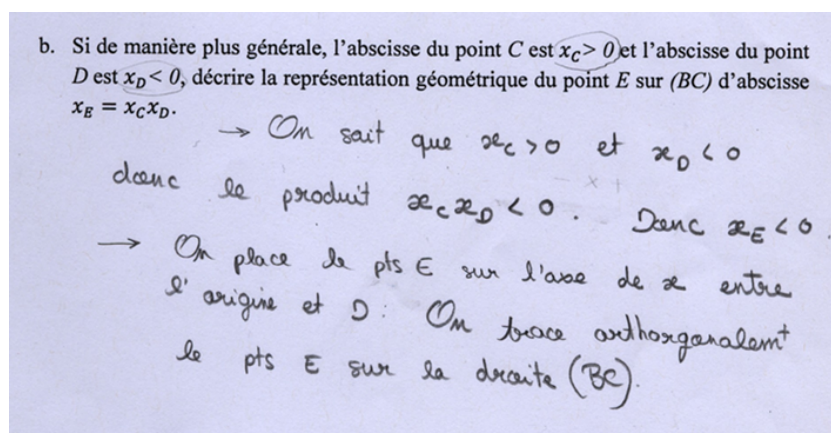 b. Si de manière plus générale, l'abscisse du point C est x_C > 0 et l'abscisse du point
D est x_D < 0, décrire la représentation géométrique du point E sur (BC) d'abscisse
x_E = x_C x_D.
→ On sait que x_C > 0 et x_D < 0
donc le produit x_C x_D < 0. Donc x_E < 0.
→ On place le pts E sur l'axe de x entre
l'origine et D : On trace orthorganalemt
le pts E sur la droite (BC).